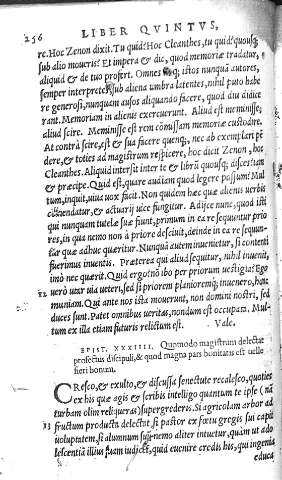 256 LIBER QVINTVS,
re. Hoc Zenon dixit. Tu quid? Hoc Cleanthes, tu quid? quousq;
sub alio moueris? Et impera & dic, quod memoriæ tradatur,
aliquid & de tuo profert. Omnes itaq; istos nunquã autores,
semper interpretes, sub aliena umbra latentes, nihil puto habe
re generosi, nunquam ausos aliquando facere, quod diu didice
rant. Memoriam in alienis exercuerunt. Aliud est meminisse,
aliud scire. Meminisse est rem cõmissam memoriæ custodire.
At contrà scire, est & sua facere quęq;, nec ab exemplari pẽ
dere, & toties ad magistrum respicere, hoc dicit Zenon, hoc
Cleanthes. Aliquid intersit inter te & librũ quousq; disces? iam
& præcipe. Quid est, quare audiam quod legere possum? Mul
tum, inquit, uiua uox facit. Non quidem hæc quæ alienis uerbis
cõmendatur, & actuarij uice fungitur. Adijce nunc, quod isti
qui nunquam tutelæ suæ fiunt, primum in ea re sequuntur prio
res, in qua nemo non à priore desciuit, deinde in ea re sequun-
tur quæ adhuc quæritur. Nunquã autem inuenietur, si contenti
fuerimus inuentis. Præterea qui aliud sequitur, nihil inuenit,
imò nec quærit. Quid ergo? nõ ibo per priorum uestigia? Ego
uerò utar uia ueteri, sed si propiorem planioremq; inuenero, hanc
muniam. Qui ante nos ista mouerunt, non domini nostri, sed
duces sunt. Patet omnibus ueritas, nondum est occupata. Mul-
tum ex illa etiam futuris relictum est. Vale.
EPIST. XXXIIII. Quomodo magistrum delectat
profectus discipuli, & quod magna pars bonitatis est uelle
fieri bonum.
CResco, & exulto, & discussa senectute recalesco, quoties
ex his quæ agis & scribis intelligo quantum te ipse (nã
turbam olim reliqueras) supergrederis. Si agricolam arbor ad
fructum producta delectat, si pastor ex fœtu gregis sui capit
uoluptatem, si alumnum suũ nemo aliter intuetur, quàm ut ado
lescentiã illius suam iudicet, quid euenire credis his, qui ingenia
educa